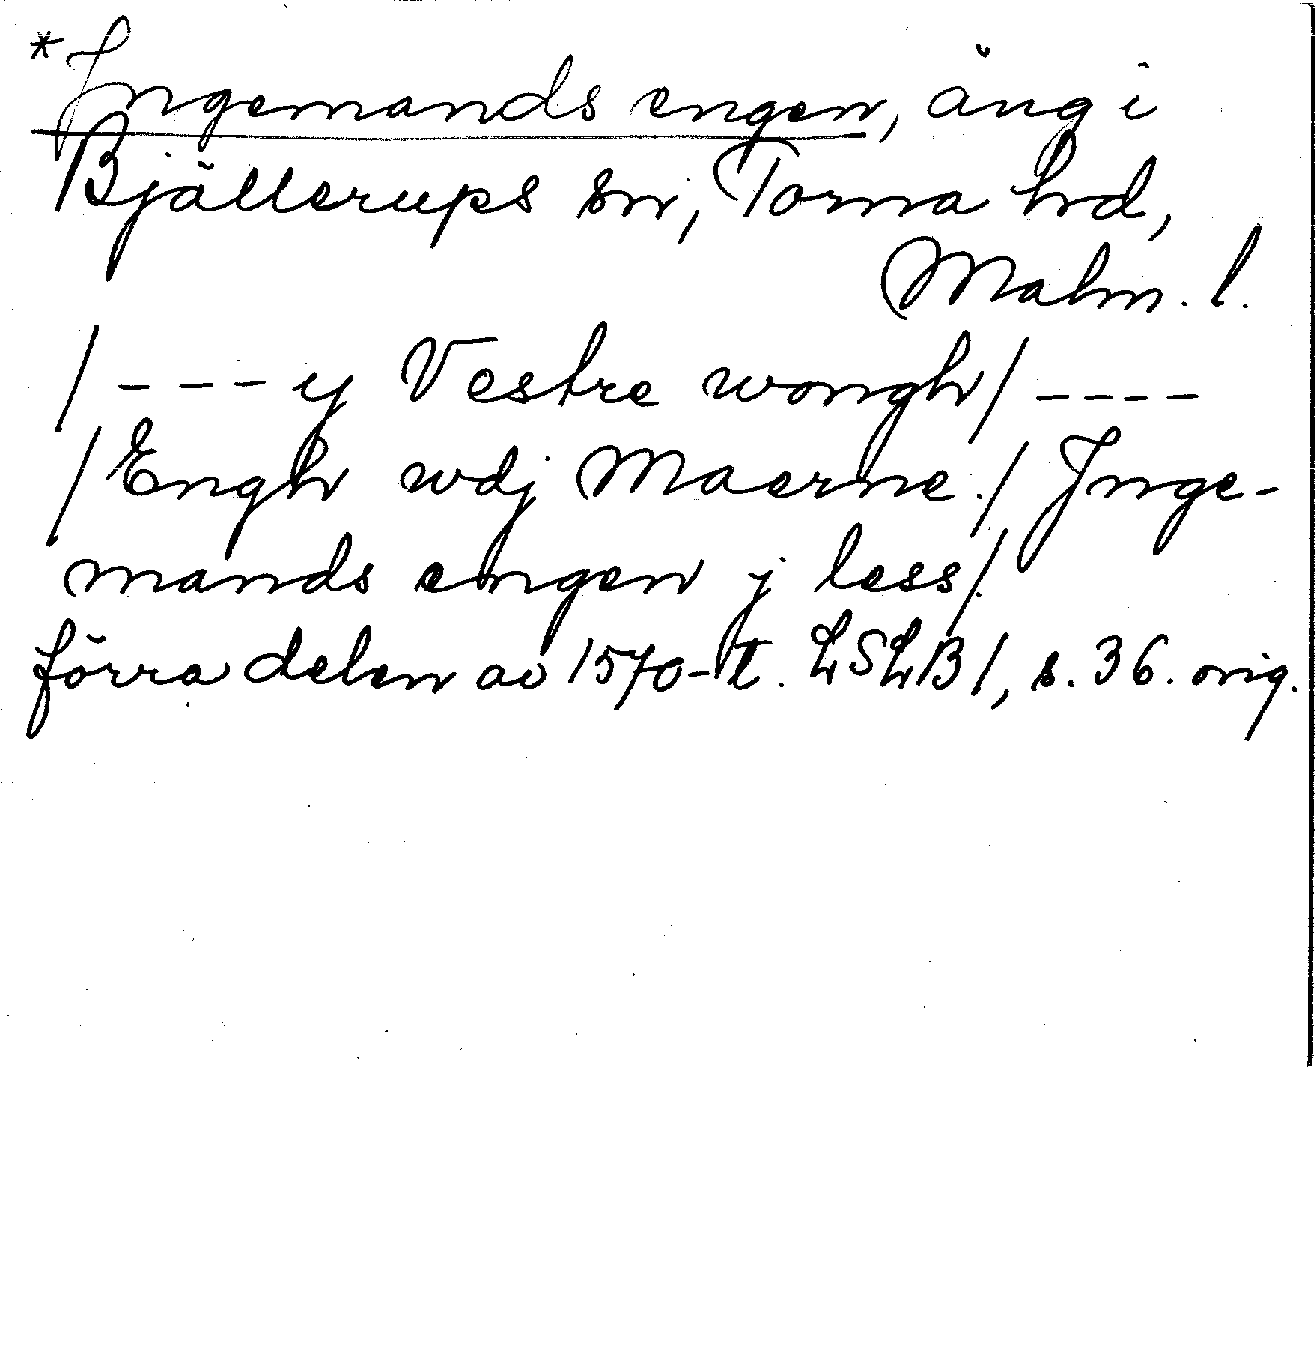 *Ingemands engen, äng i
Bjällerups sn, Torna hd,
Malm. l.
/ - - - y Vestre wongh / - - - -
/ Engh wdj Maerne. / Jnge-
mands engen j less /.
förra delen av 1570-t. LSLB 1, s. 36. orig.